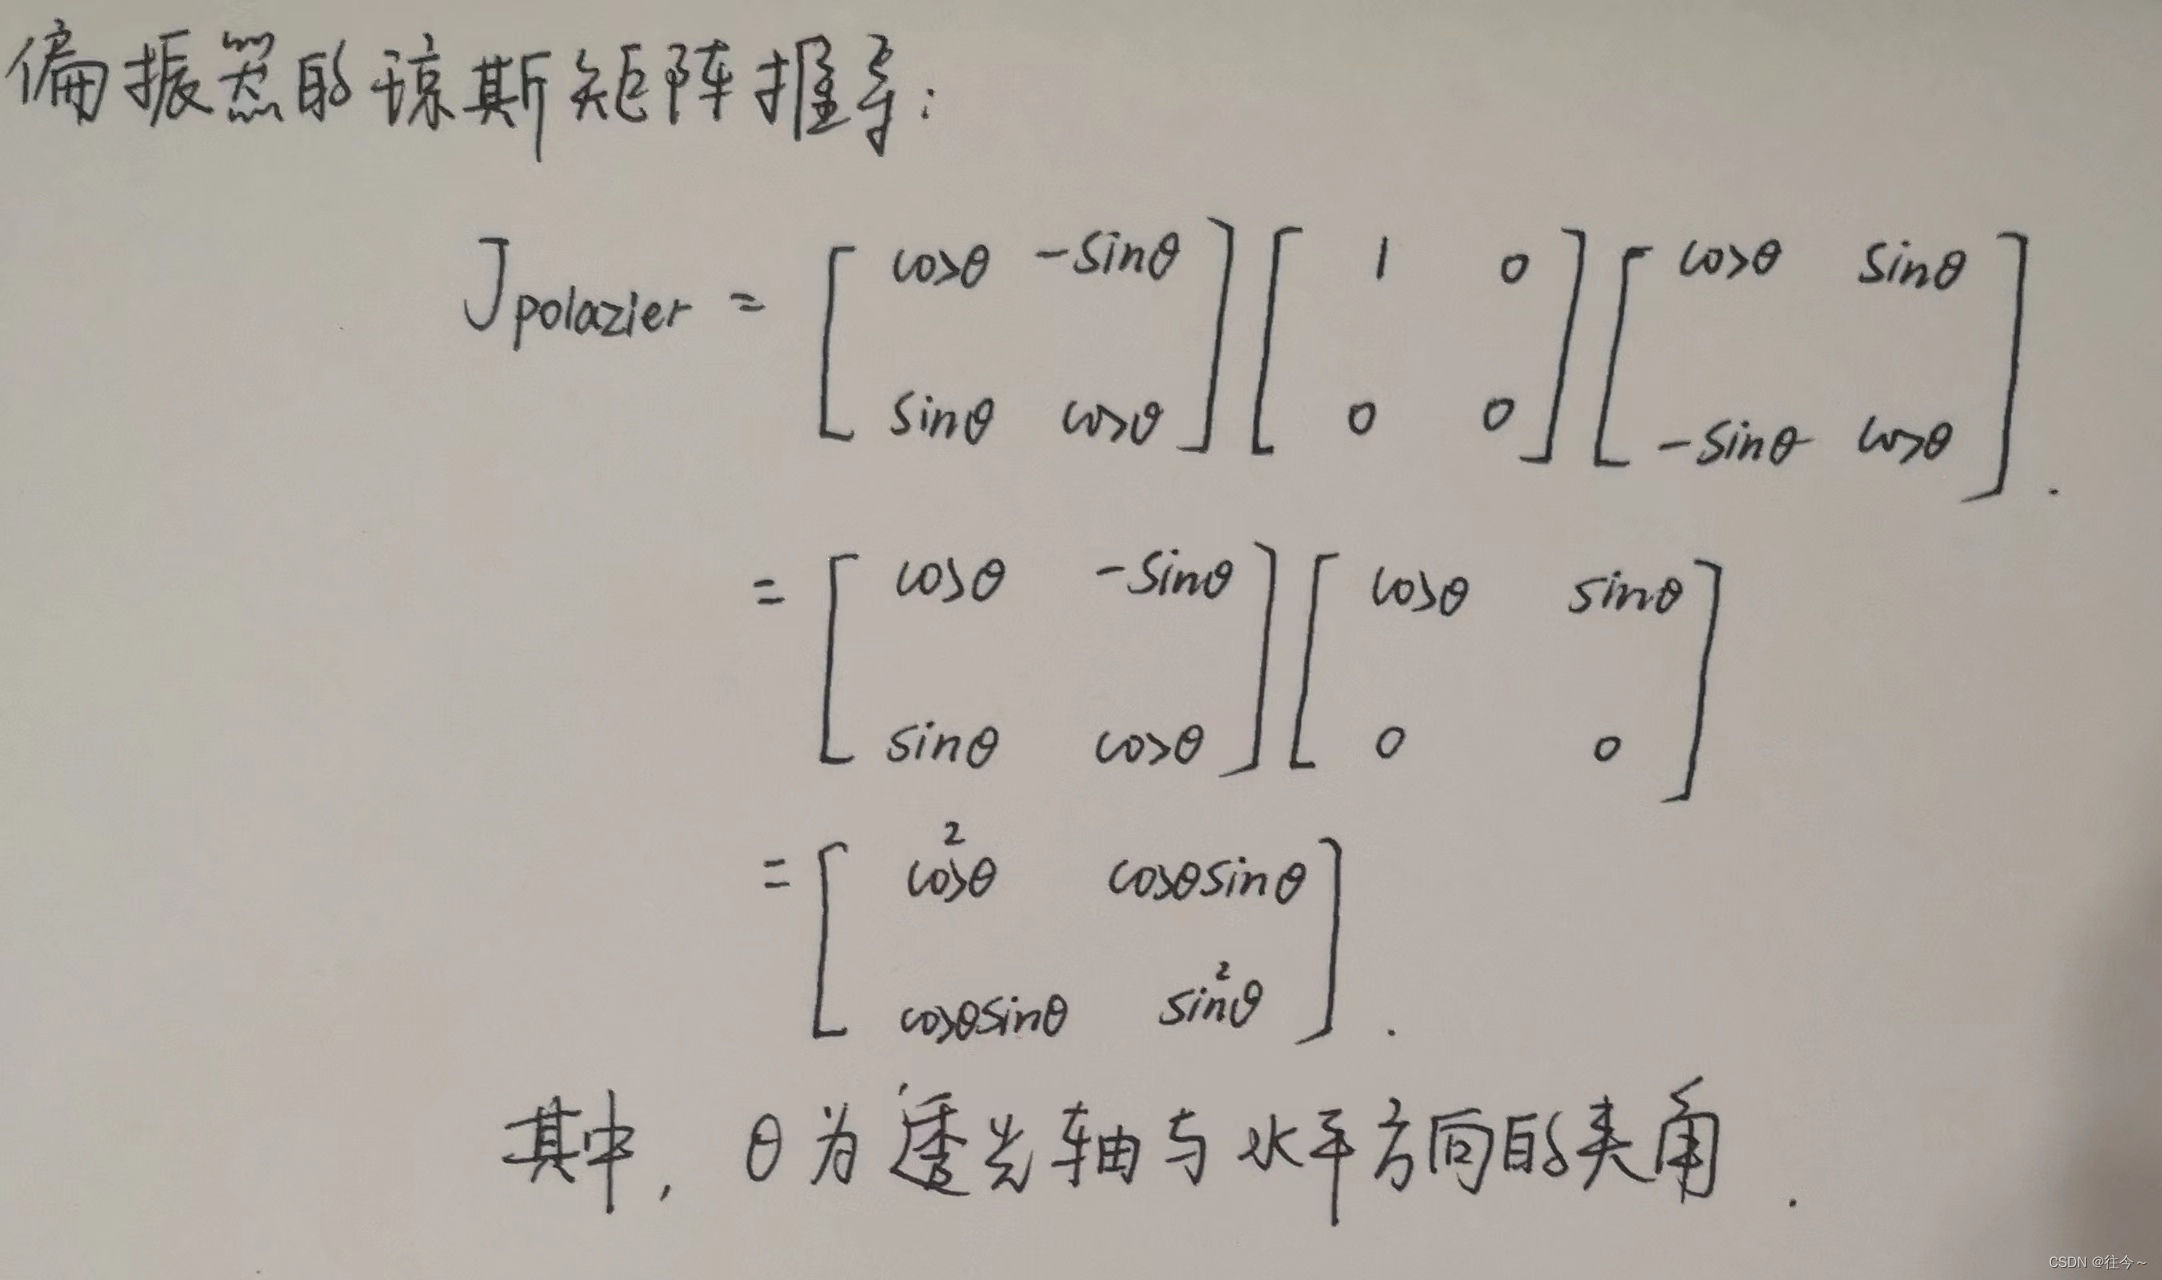 偏振器的琼斯矩阵推导:
J_polazier = [ cosθ -sinθ ; sinθ cosθ ] [ 1 0 ; 0 0 ] [ cosθ sinθ ; -sinθ cosθ ] .
= [ cosθ -sinθ ; sinθ cosθ ] [ cosθ sinθ ; 0 0 ]
= [ cos²θ cosθsinθ ; cosθsinθ sin²θ ] .
其中, θ为透光轴与水平方向的夹角 .
CSDN @往今~